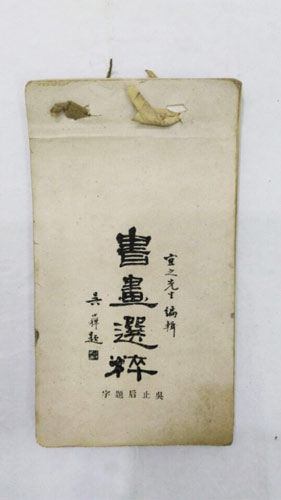 先生編輯
書畫選粹
吳 題
吳止后題字